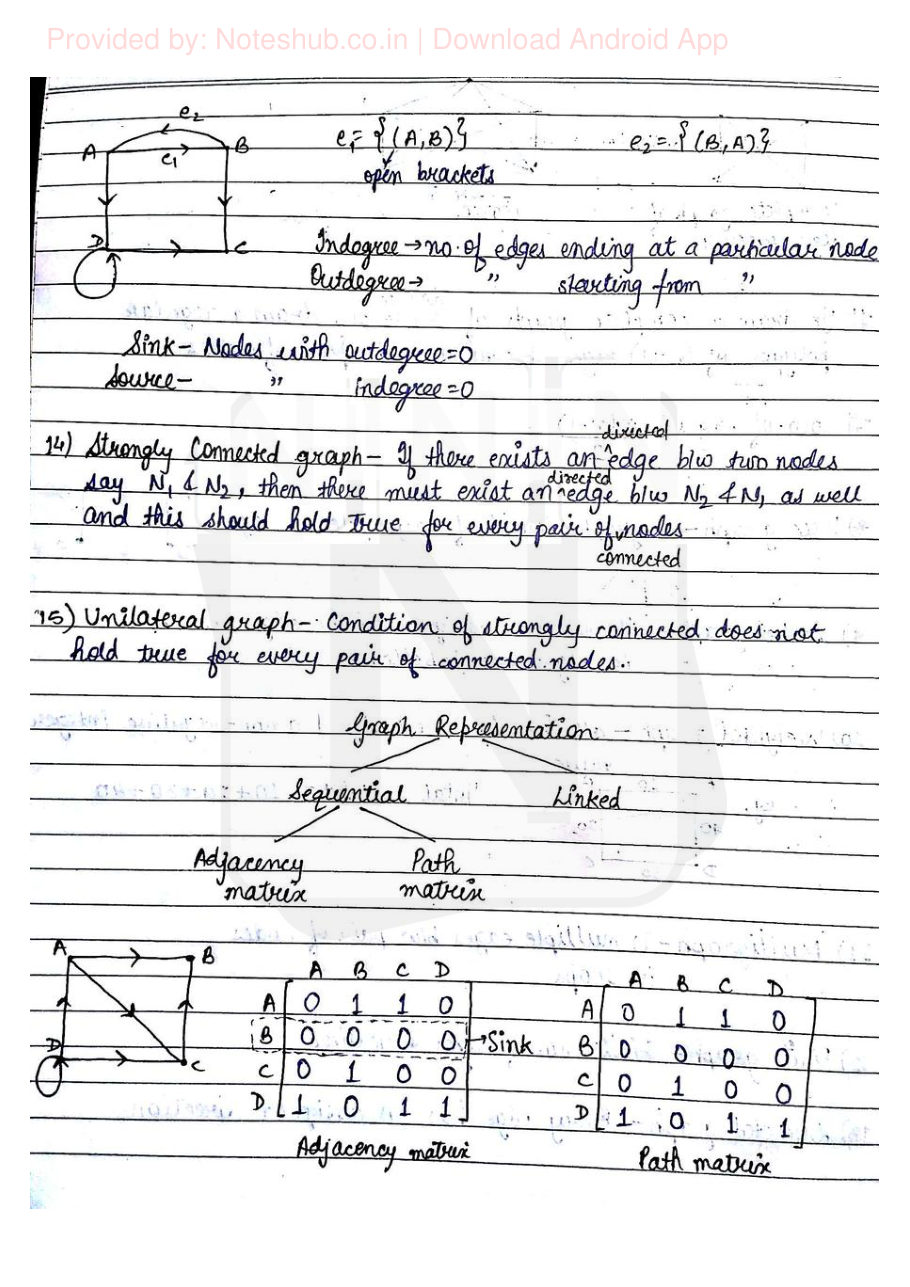 Provided by: Noteshub.co.in | Download Android App
e2
A B
e1
D C
e1= {(A,B)} e2= {(B,A)}
open brackets
Indegree → no. of edges ending at a particular node
Outdegree → " starting from "
Sink - Nodes with outdegree=0
Source - " indegree=0
directed
14) Strongly Connected graph - If there exists an ^ edge b/w two nodes
directed
say N1 & N2, then there must exist an ^ edge b/w N2 & N1 as well
and this should hold true for every pair of nodes
connected
15) Unilateral graph - Condition of strongly connected does not
hold true for every pair of connected nodes.
Graph Representation
Sequential Linked
Adjacency Path
matrix matrix
A B
D C
A B C D
A 0 1 1 0
B 0 0 0 0 → Sink
C 0 1 0 0
D 1 0 1 1
Adjacency matrix
A B C D
A 0 1 1 0
B 0 0 0 0
C 0 1 0 0
D 1 0 1 1
Path matrix